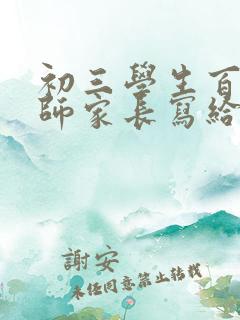 初三學生百
師家長寫給
謝安
未任同意禁止轉載